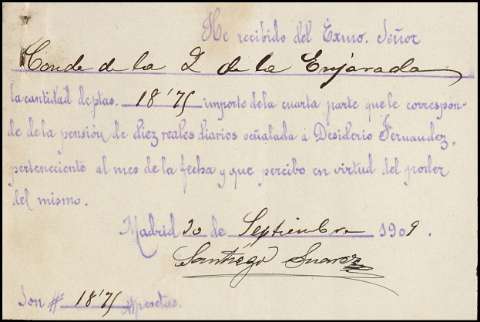 He recibido del Exmo. Señor
Conde de la Q de la Enjarada
la cantidad de ptas. 18'75 importe de la cuarta parte que le correspon-
de de la pensión de diez reales diarios señalada a Desiderio Fernandez,
perteneciente al mes de la fecha y que percibo en virtud del poder
del mismo.
Madrid 20 de Septiembre 1909.
Santiago Suarez
Son # 18'75 # pesetas.